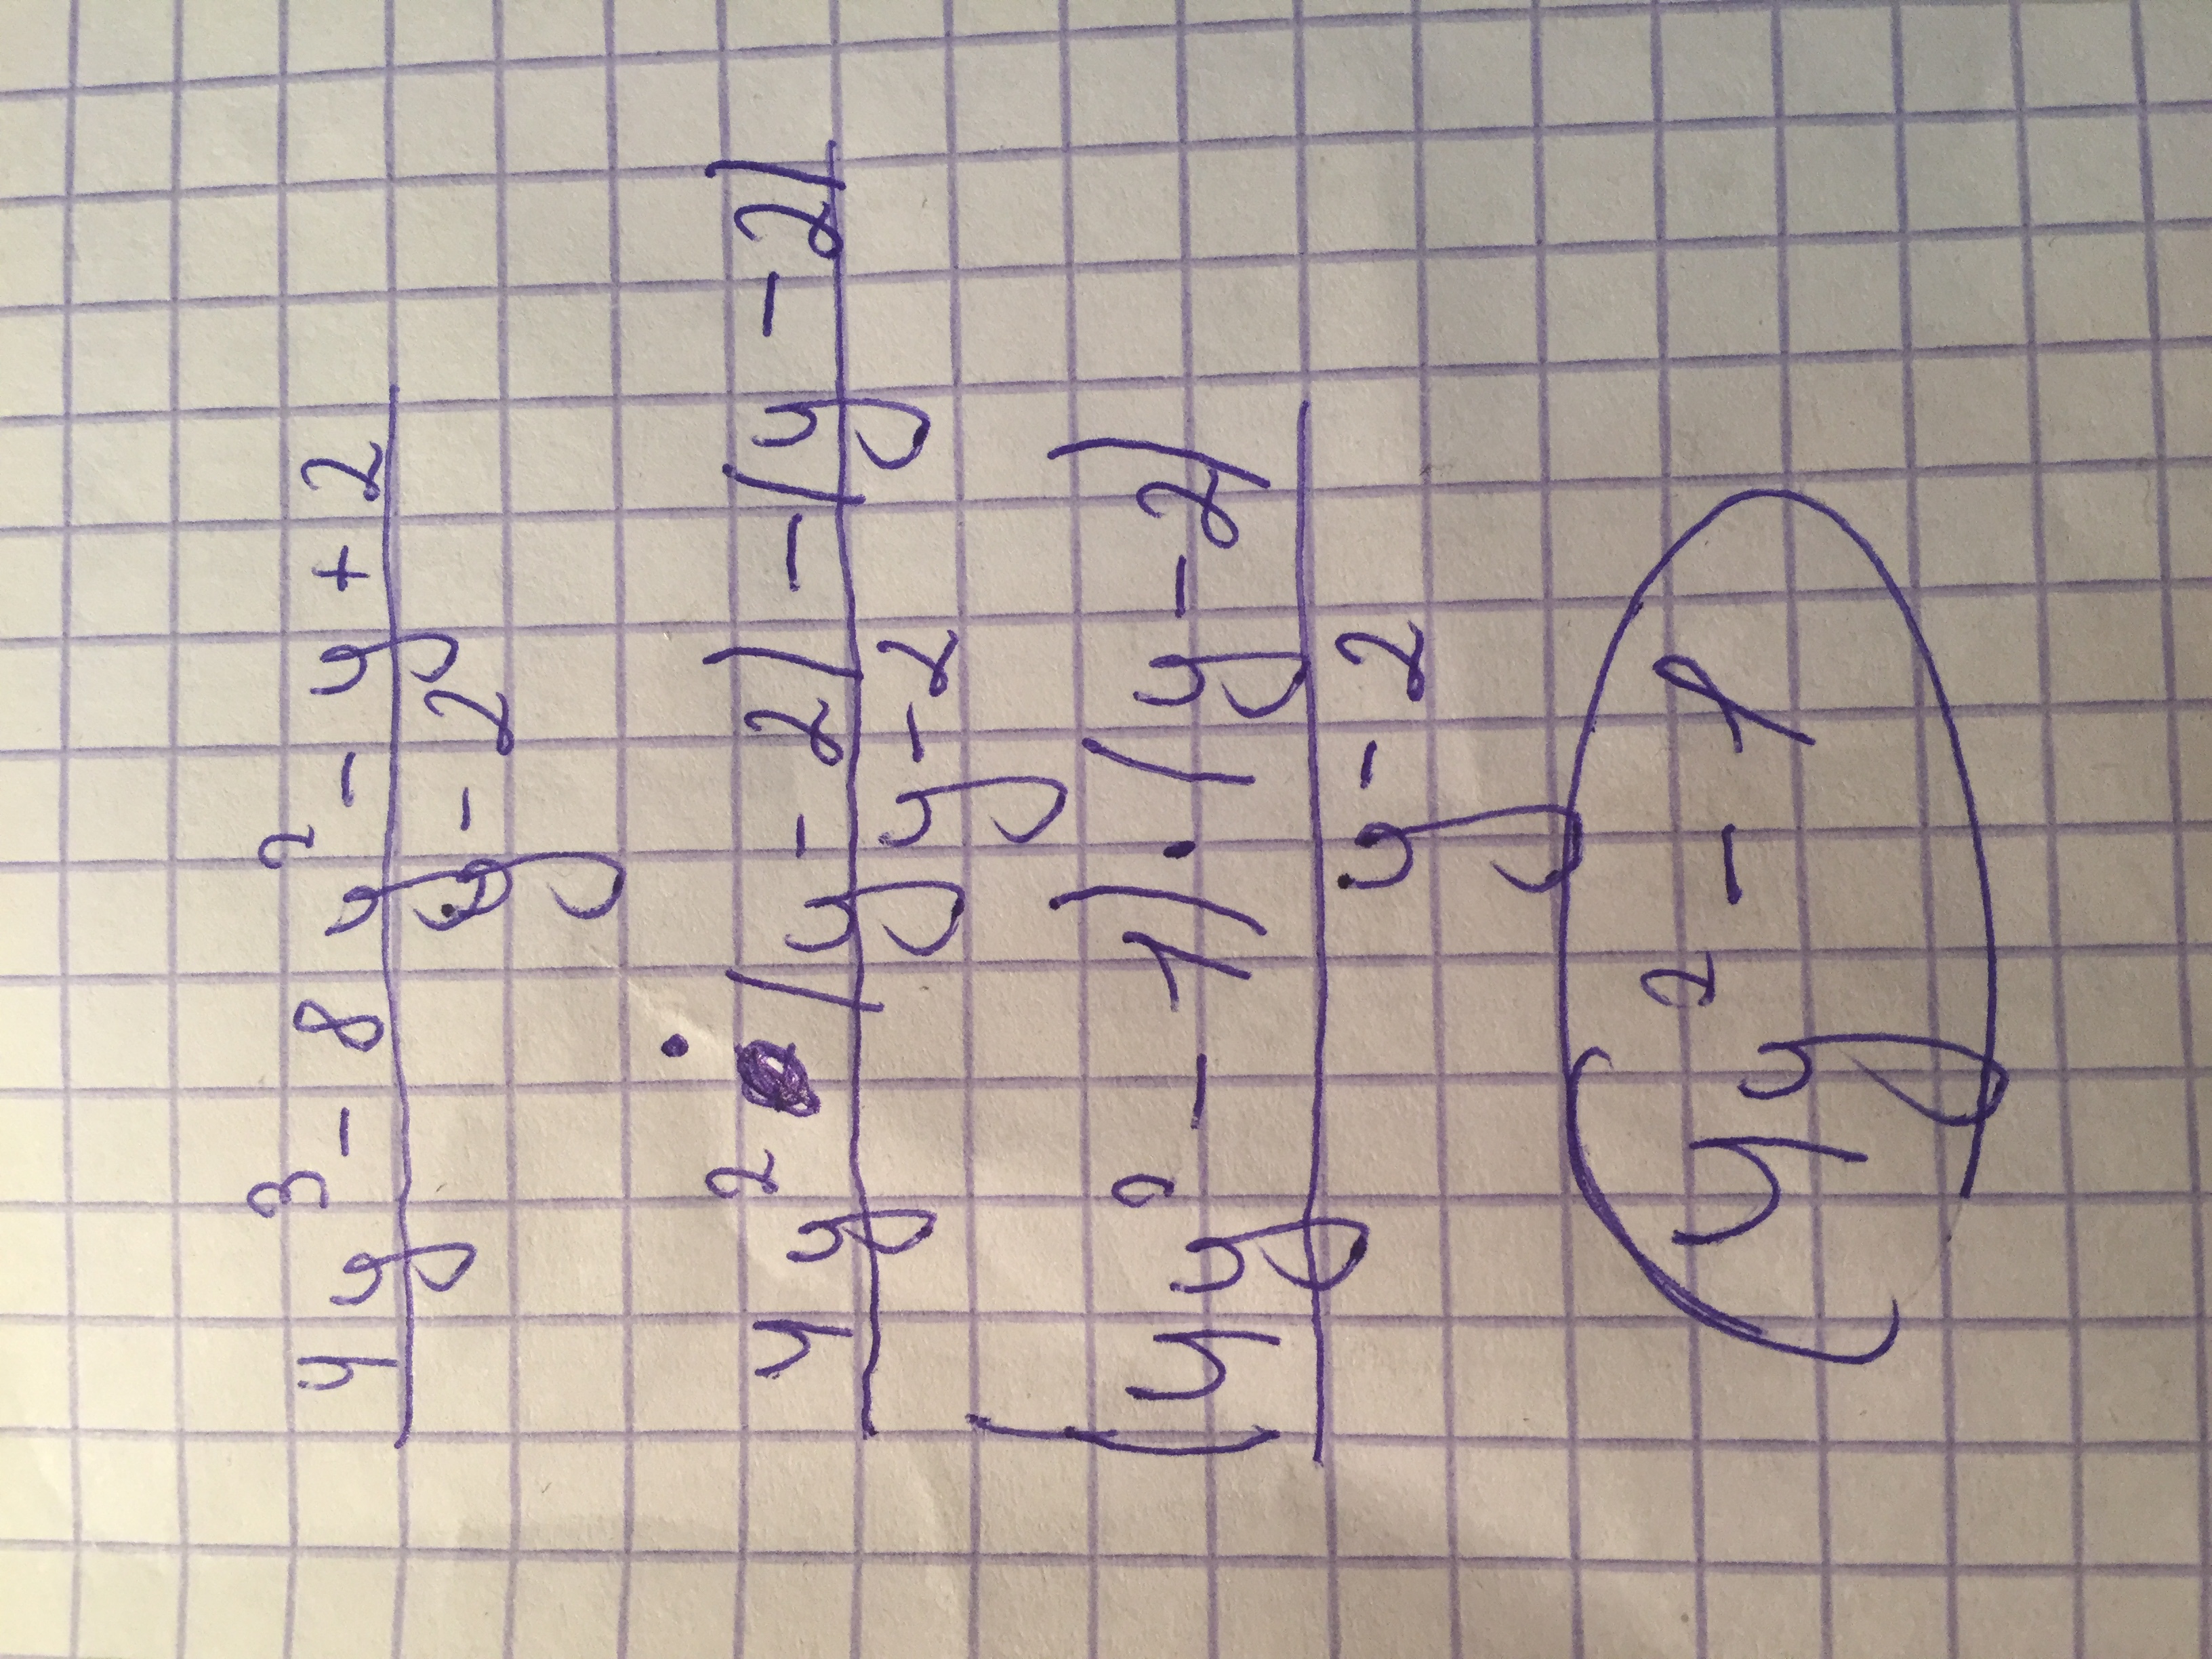 4y³ - 8y² - y + 2
y - 2
4y² · (y - 2) - (y - 2)
y - 2
(4y² - 1) · (y - 2)
y - 2
4y² - 1